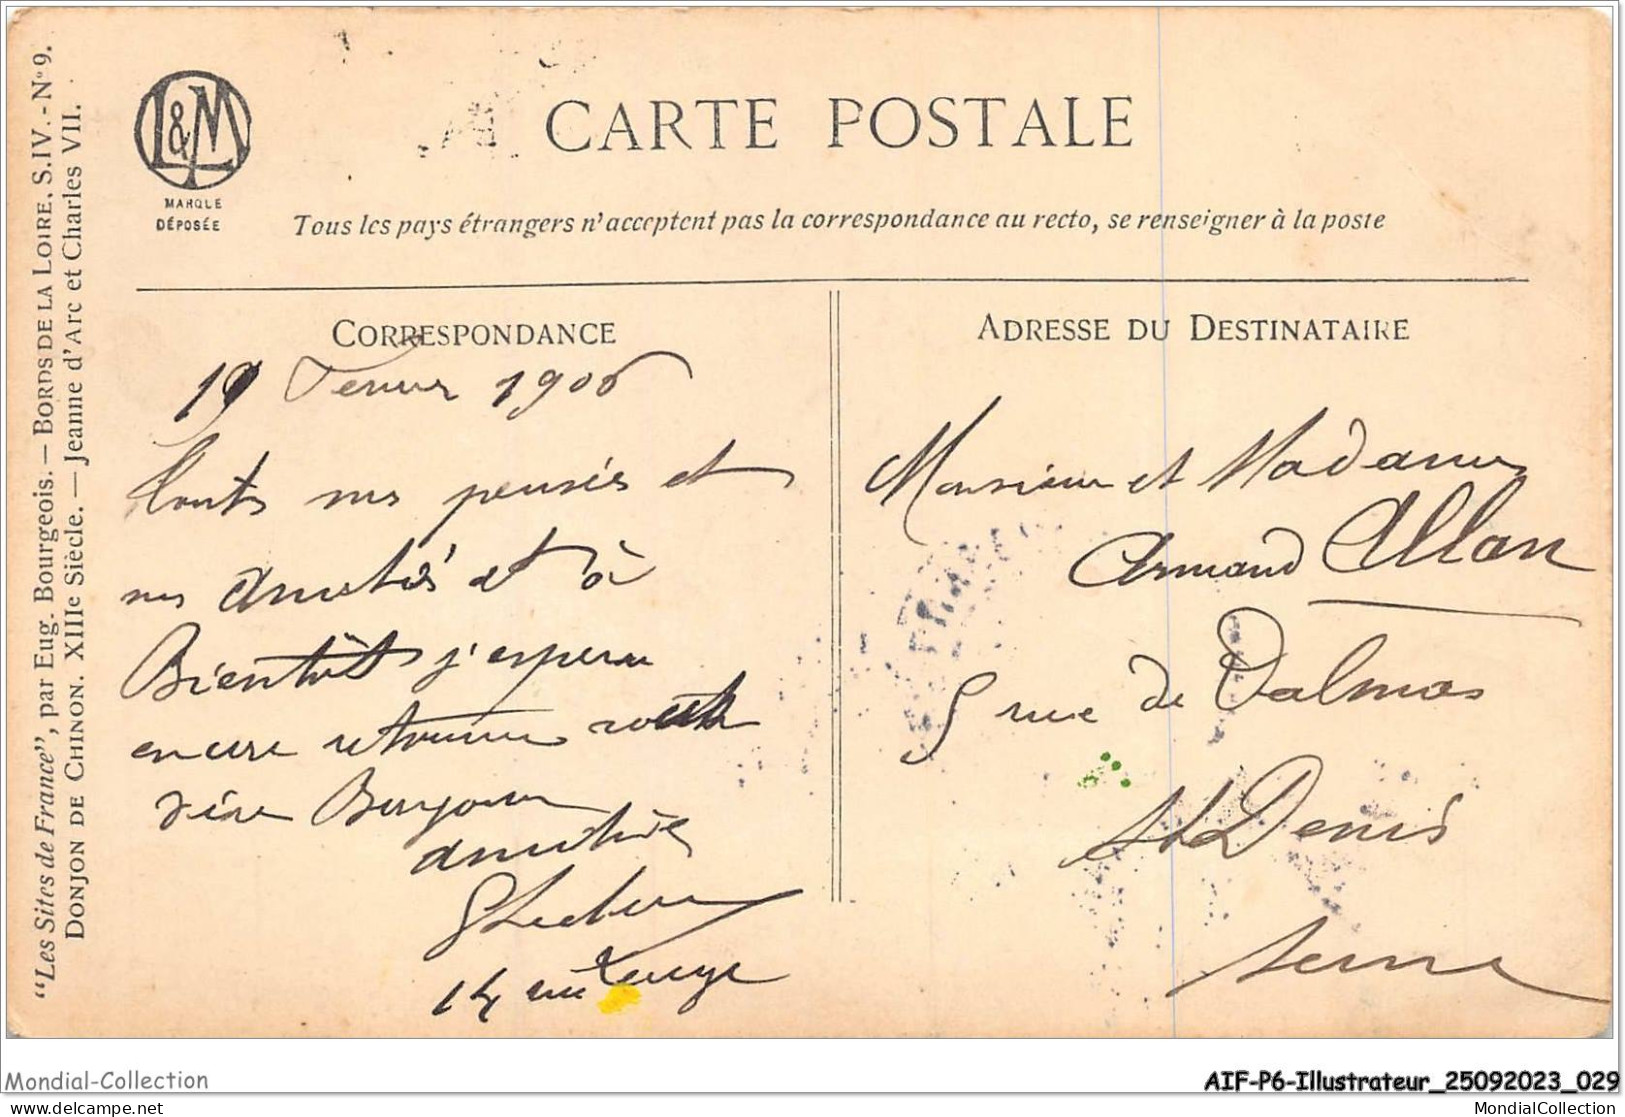 "Les Sites de France", par Eug. Bourgeois. — BORDS DE LA LOIRE. S. IV. - Nº 9.
DONJON DE CHINON. XIIIe Siècle. — Jeanne d'Arc et Charles VII.
L&M
MARQUE
DÉPOSÉE
CARTE POSTALE
Tous les pays étrangers n'acceptent pas la correspondance au recto, se renseigner à la poste
CORRESPONDANCE
19 Fevrier 1906
Touts nos pensées et
nos amitiés et à
Bientôt j'espère
encore retourner vous
dire Bonjour
amitiés
14 rue
ADRESSE DU DESTINATAIRE
Monsieur et Madame
Armand Allan
5 rue de Dalmas
St Denis
Seine
Mondial-Collection
AIF-P6-Illustrateur_25092023_029
delcampe.net
MondialCollection